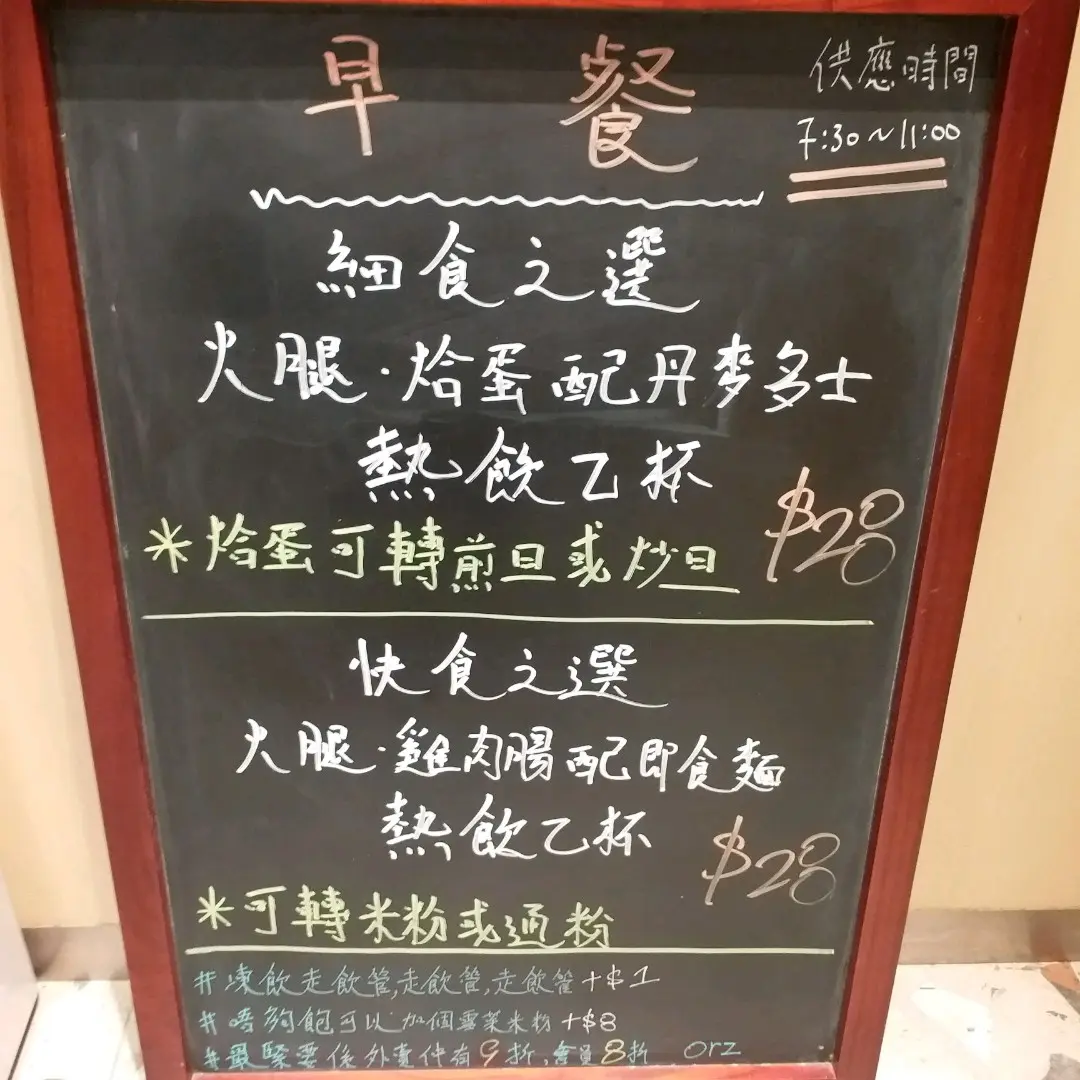 早餐
供應時間
7:30~11:00
細食之選
火腿·烚蛋配丹麥多士
熱飲乙杯
$28
*烚蛋可轉煎旦或炒旦
快食之選
火腿·雞肉腸配即食麵
熱飲乙杯
$28
*可轉米粉或通粉
#凍飲走飲管,走飲管,走飲管+$1
#唔夠飽可以加個雪菜米粉+$8
#最緊要係外賣仲有9折,會員8折 orz